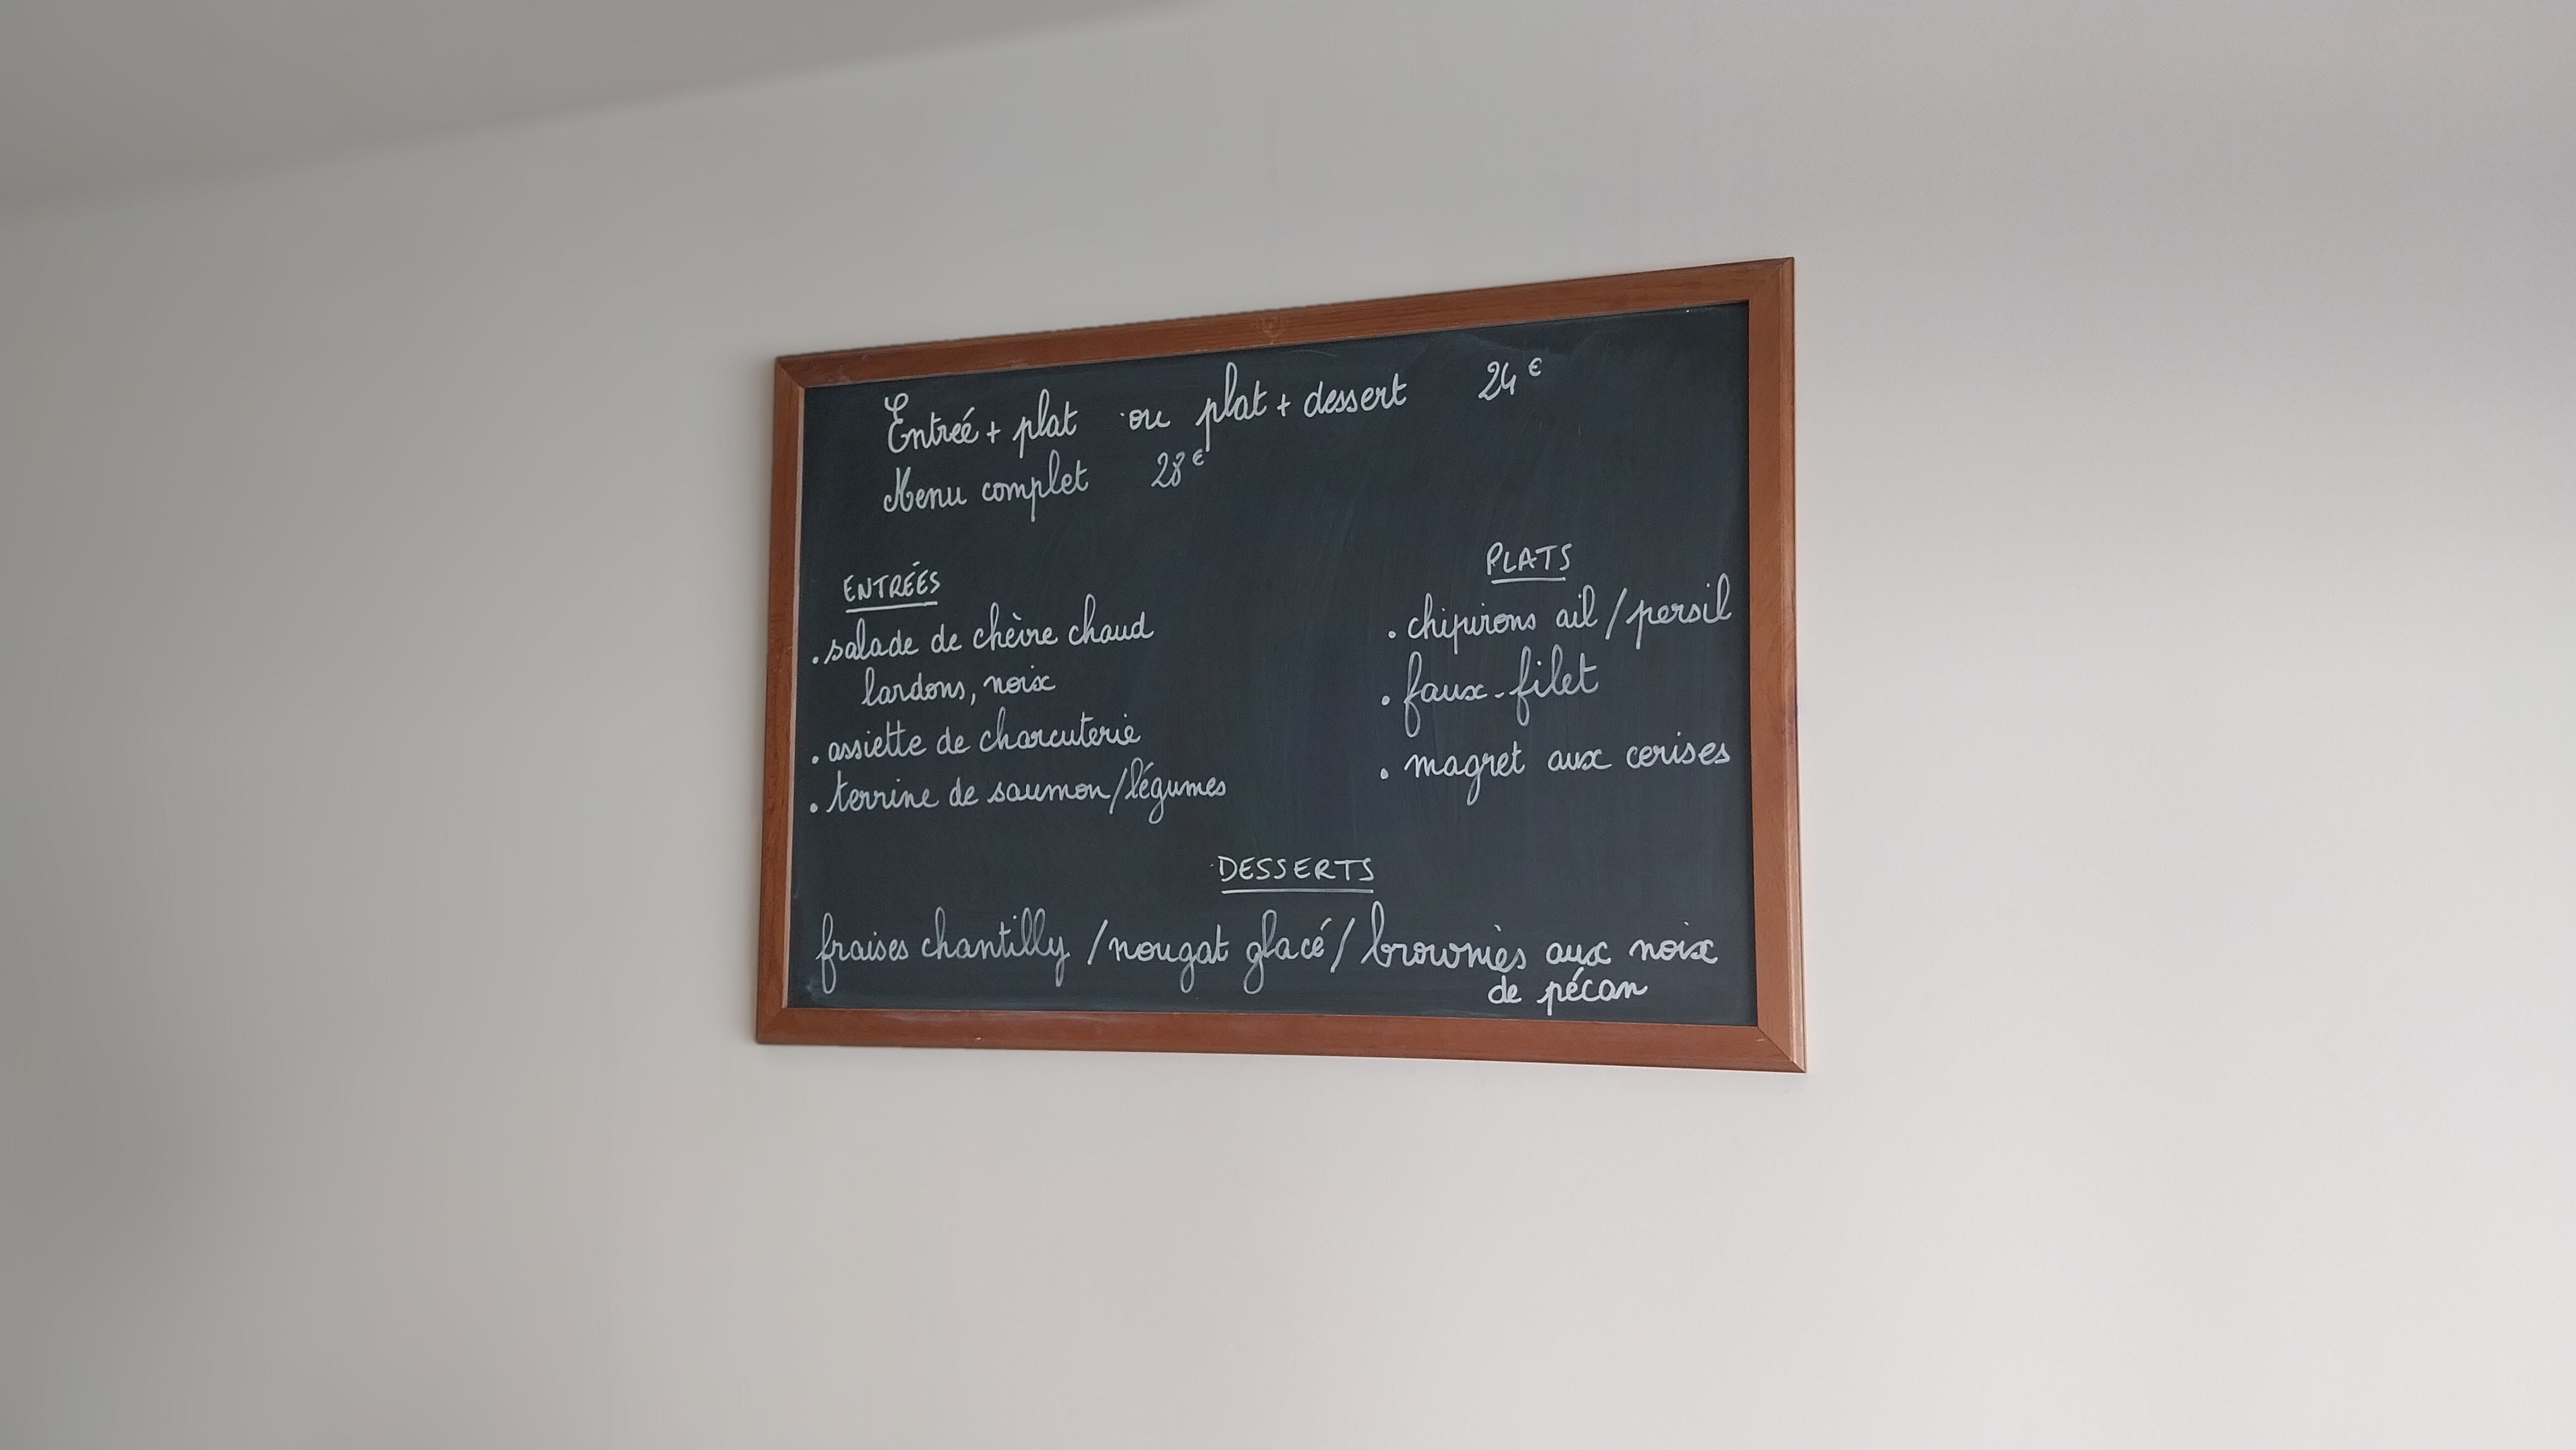 Entrée + plat ou plat + dessert 24€
Menu complet 28€
ENTRÉES
. salade de chèvre chaud
lardons, noix
. assiette de charcuterie
. terrine de saumon/légumes
PLATS
. chipirons ail / persil
. faux-filet
. magret aux cerises
DESSERTS
fraises chantilly / nougat glacé / brownies aux noix
de pécan